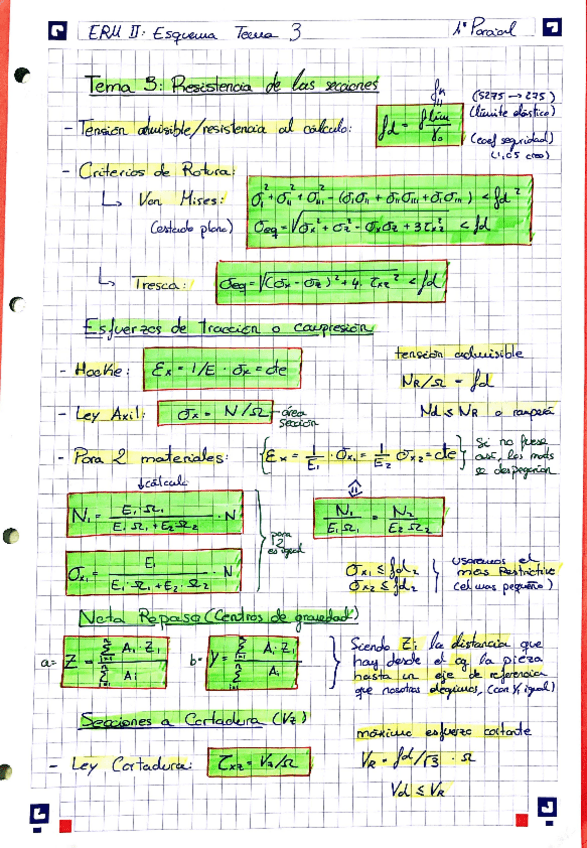 ERM II: Esquema Tema 3 1º Parcial
Tema 3: Resistencia de las secciones
- Tensión admisible/resistencia al cálculo: fd = flim/γ₀
fk
(S275 → 275)
(límite elástico)
(coef seguridad)
(1,05 creo)
- Criterios de Rotura:
↳ Von Mises: σI² + σII² + σIII² - (σIσII + σIIσIII + σIσIII) < fd²
(estado plano) σeq = √(σx² + σz² - σxσz + 3τxz²) < fd
↳ Tresca: σeq = √((σx - σz)² + 4·τxz²) < fd
Esfuerzos de tracción o compresión
- Hooke: Ɛx = 1/E · σx = cte
tensión admisible
NR/Ω = fd
- Ley Axil: σx = N/Ω → área sección
Nd ≤ NR o romperá
- Para 2 materiales: {Ɛx = 1/E₁ · σx₁ = 1/E₂ σx₂ = cte} Si no fuese así, los mats se despegarían
↓ cálculo
N₁ = E₁Ω₁/(E₁Ω₁ + E₂Ω₂) · N
N₁/(E₁Ω₁) = N₂/(E₂Ω₂)
para 2 es igual
σx₁ = E₁/(E₁·Ω₁ + E₂·Ω₂) · N
σx₁ ≤ fd₁
σx₂ ≤ fd₂
Usaremos el
más restrictivo
(el más pequeño)
Nota Repaso (Centros de gravedad)
a= Z = Σ Ai·Zi / Σ Ai b= Y = Σ Ai·Zi / Σ Ai
Siendo Zi la distancia que
hay desde el cg la pieza
hasta un eje de referencia
que nosotros elegimos, (con Yi igual)
Secciones a Cortadura (Vz)
máximo esfuerzo cortante
- Ley Cortadura: τxz = Vz/Ω
VR = fd/√3 · Ω
Vd ≤ VR